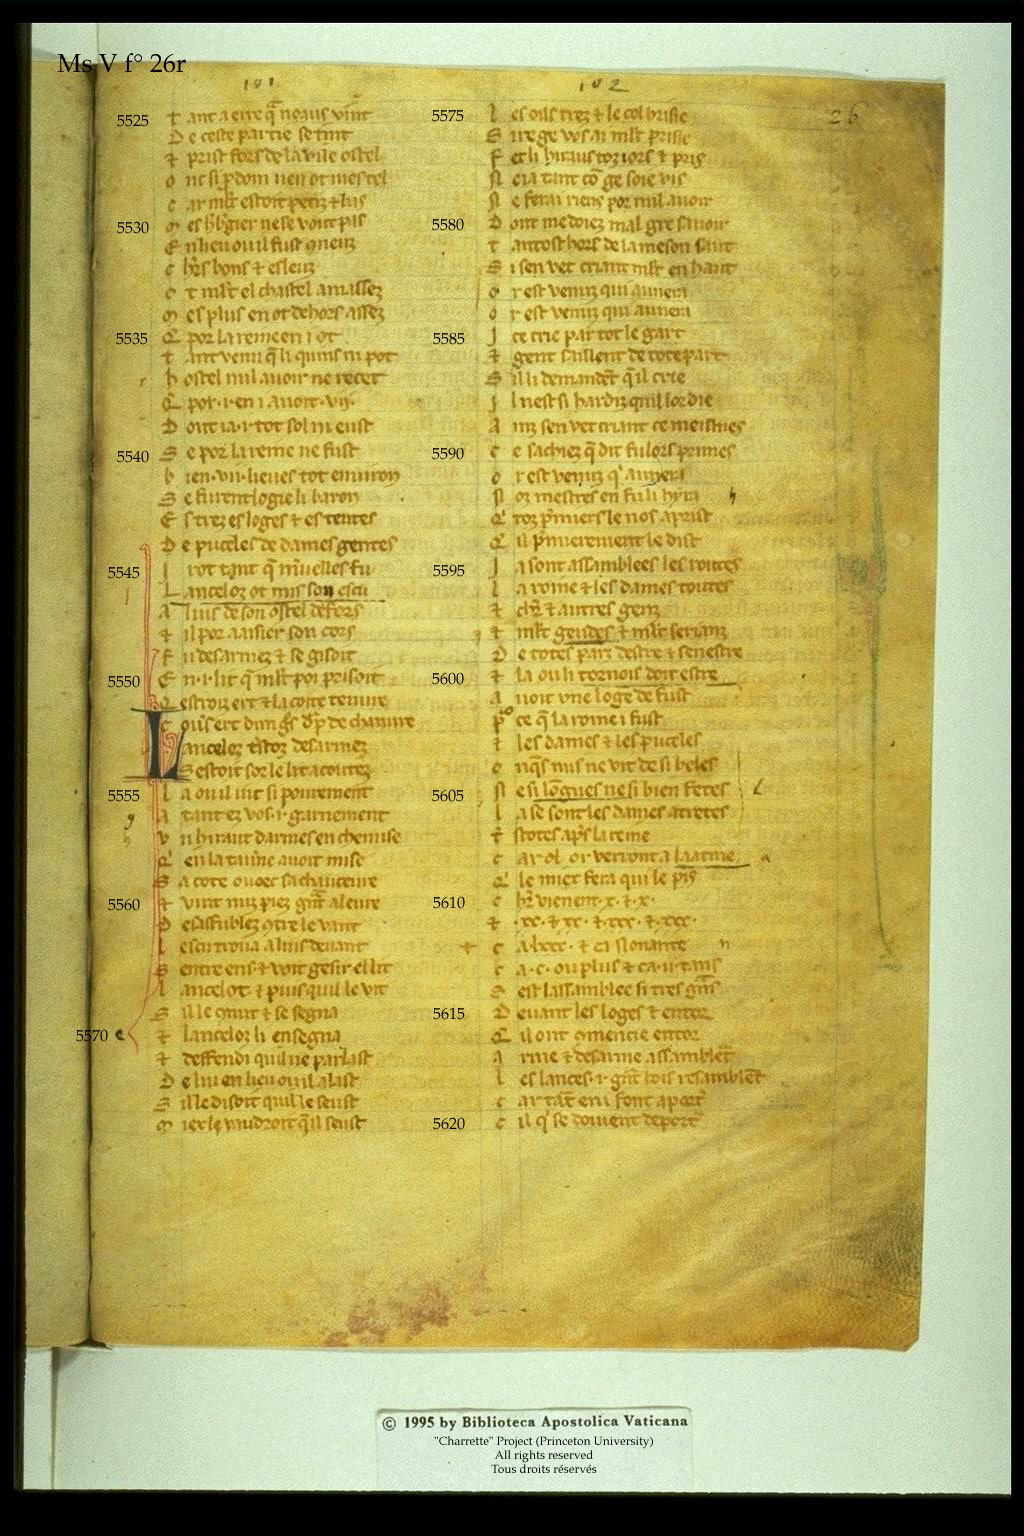 Ms V f° 26r
101
102
26
5525
T ant a erre q̄ noauz vint
D e ceste partie se tint
⁊ prist fors de la vile ostel
o nc si p̄dom nen ot mes tel
c ar ml't estoit petiz ⁊ bas
5530
m es h'bgier ne se vout pas
E n lieu ou il fust
c h'rs bons ⁊ esleuz
c t ml't el chastel amassez
m es plus en ot dehors assez
5535
Q por la reine en i ot
t ant venu q̄ li quins ni pot
h ostel nul avoir ne recet
Q por .i. en i avoit .vii.
D ont ia .i. tot sol ni eust
5540
S e por la reine ne fust
b ien .vii. lieues tot environ
S e furent logie li baron
E s trez es loges ⁊ es tentes
D e puceles de dames gentes
5545
I rot tant q̄ mvelles fu
L anceloz ot mis son escu
A luis de son ostel defors
⁊ il por aaisier son cors
f u desarmez ⁊ se gisoit
5550
E n .i. lit q̄ ml't poi prisoit
Q estroiz ert ⁊ la coite tenuue
C ouvers ert dun
L anceloz
S estoit sor le lit acoutez
5555
L a ou il iut si povrement
A tant ez vos .i. garnement
v n hiraut darmes en chemise
Q en la taverne avoit mise
S a cote ovoec sa chauceure
5560
⁊ vint nuz piez grant aleure
D esafublez contre le vant
l escu trova a luis devant
S entre ens ⁊ voit gesir el lit
l ancelot ⁊ puis quil le vit
S il le conut ⁊ se segna
5570
⁊ lanceloz li ensegna
⁊ deffendi quil ne parlast
D e lui en lieu ou il alast
S il le disoit quil le seust
m iex li vaudroit q̄ il seust
5575
l es oilz trez ⁊ le col brisie
S ire ge vos ai ml't prisie
F et li hirauz toz iors ⁊ pris
N eia tant com ge soie vis
N e ferai riens por nul avoir
5580
D ont me doiez mal gre savoir
t antost hors de la meson saut
S i sen vet criant ml't en haut
o r est venuz qui aunera
o r est venuz qui aunera
5585
I ce crie par tot le gart
⁊ gent saillent de tote part
S il li demandent q̄ il crie
I l nest si hardiz quil lor die
A inz sen vet criant ce meismes
5590
c e sachiez q̄ dit fu lors primes
o r est venuz q' aunera
N oz mestres en fu li hyra
Q toz p'miers le nos aprist
Q il p'mierement le dist
5595
I a sont assamblees les routes
l a roine ⁊ les dames toutes
⁊ ch'r ⁊ autres genz
⁊ ml't
D e totes parz destre ⁊ senestre
5600
⁊ la ou li tornois doit estre
a voit vne loge de fust
p^o ce q̄ la roine i fust
⁊ les dames ⁊ les puceles
o nq̄s nus ne vit de si beles
5605
N e si longues ne si bien fetes
l a se sont les dames atretes
t
c
Q le miex fera qui le pis
5610
c h'r vienent .x. ⁊ .x.
⁊ .xx. ⁊ xx. ⁊ .xxx. ⁊ .xxx.
c a .lxxx.
c a .c. ou plus ⁊ ca .ii. tans
S est lassamblee si tres grans
5615
D evant les loges ⁊ entor
Q il ont comencie entor
a rme ⁊ desarme assamblent
l es lances .i. grant bois resamblent
c ar tant en i font aporter
5620
c il q' se doivent deporter
© 1995 by Biblioteca Apostolica Vaticana
"Charrette" Project (Princeton University)
All rights reserved
Tous droits réservés